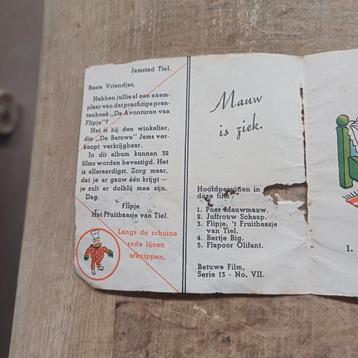 Jamstad Tiel.
Beste Vriendjes,
Hebben jullie al een exem-
plaar van dat prachtige pren-
tenboek „De Avonturen van
Flipje"?
Het is bij den winkelier,
die „De Betuwe" Jams ver-
koopt verkrijgbaar.
In dit album kunnen 32
films worden bevestigd. Het
is alleraardigst. Zorg maar,
dat je er gauw één krijgt —
je zult er dolblij mee zijn.
Dag.
Flipje
Het Fruitbaasje van Tiel.
Langs de schuine
rode lijnen
afknippen.
Mauw
is ziek.
Hoofdpersonen in
deze film:
1. Poes Mauwmauw.
2. Juffrouw Schaap.
3. Flipje, 't Fruitbaasje
van Tiel.
4. Bertje Big.
5. Flapoor Olifant.
Betuwe Film,
Serie 13 - No. VII.
1.